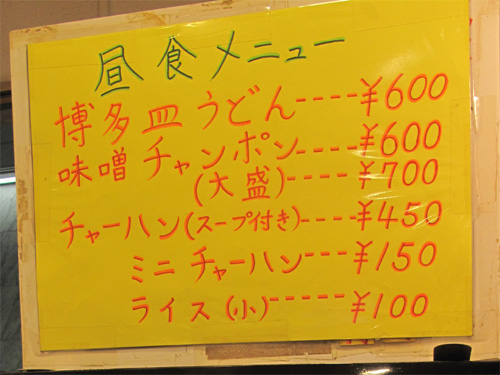 昼食メニュー
博多皿うどん----¥600
味噌チャンポン----¥600
(大盛)----¥700
チャーハン(スープ付き)----¥450
ミニチャーハン---¥150
ライス(小)-----¥100